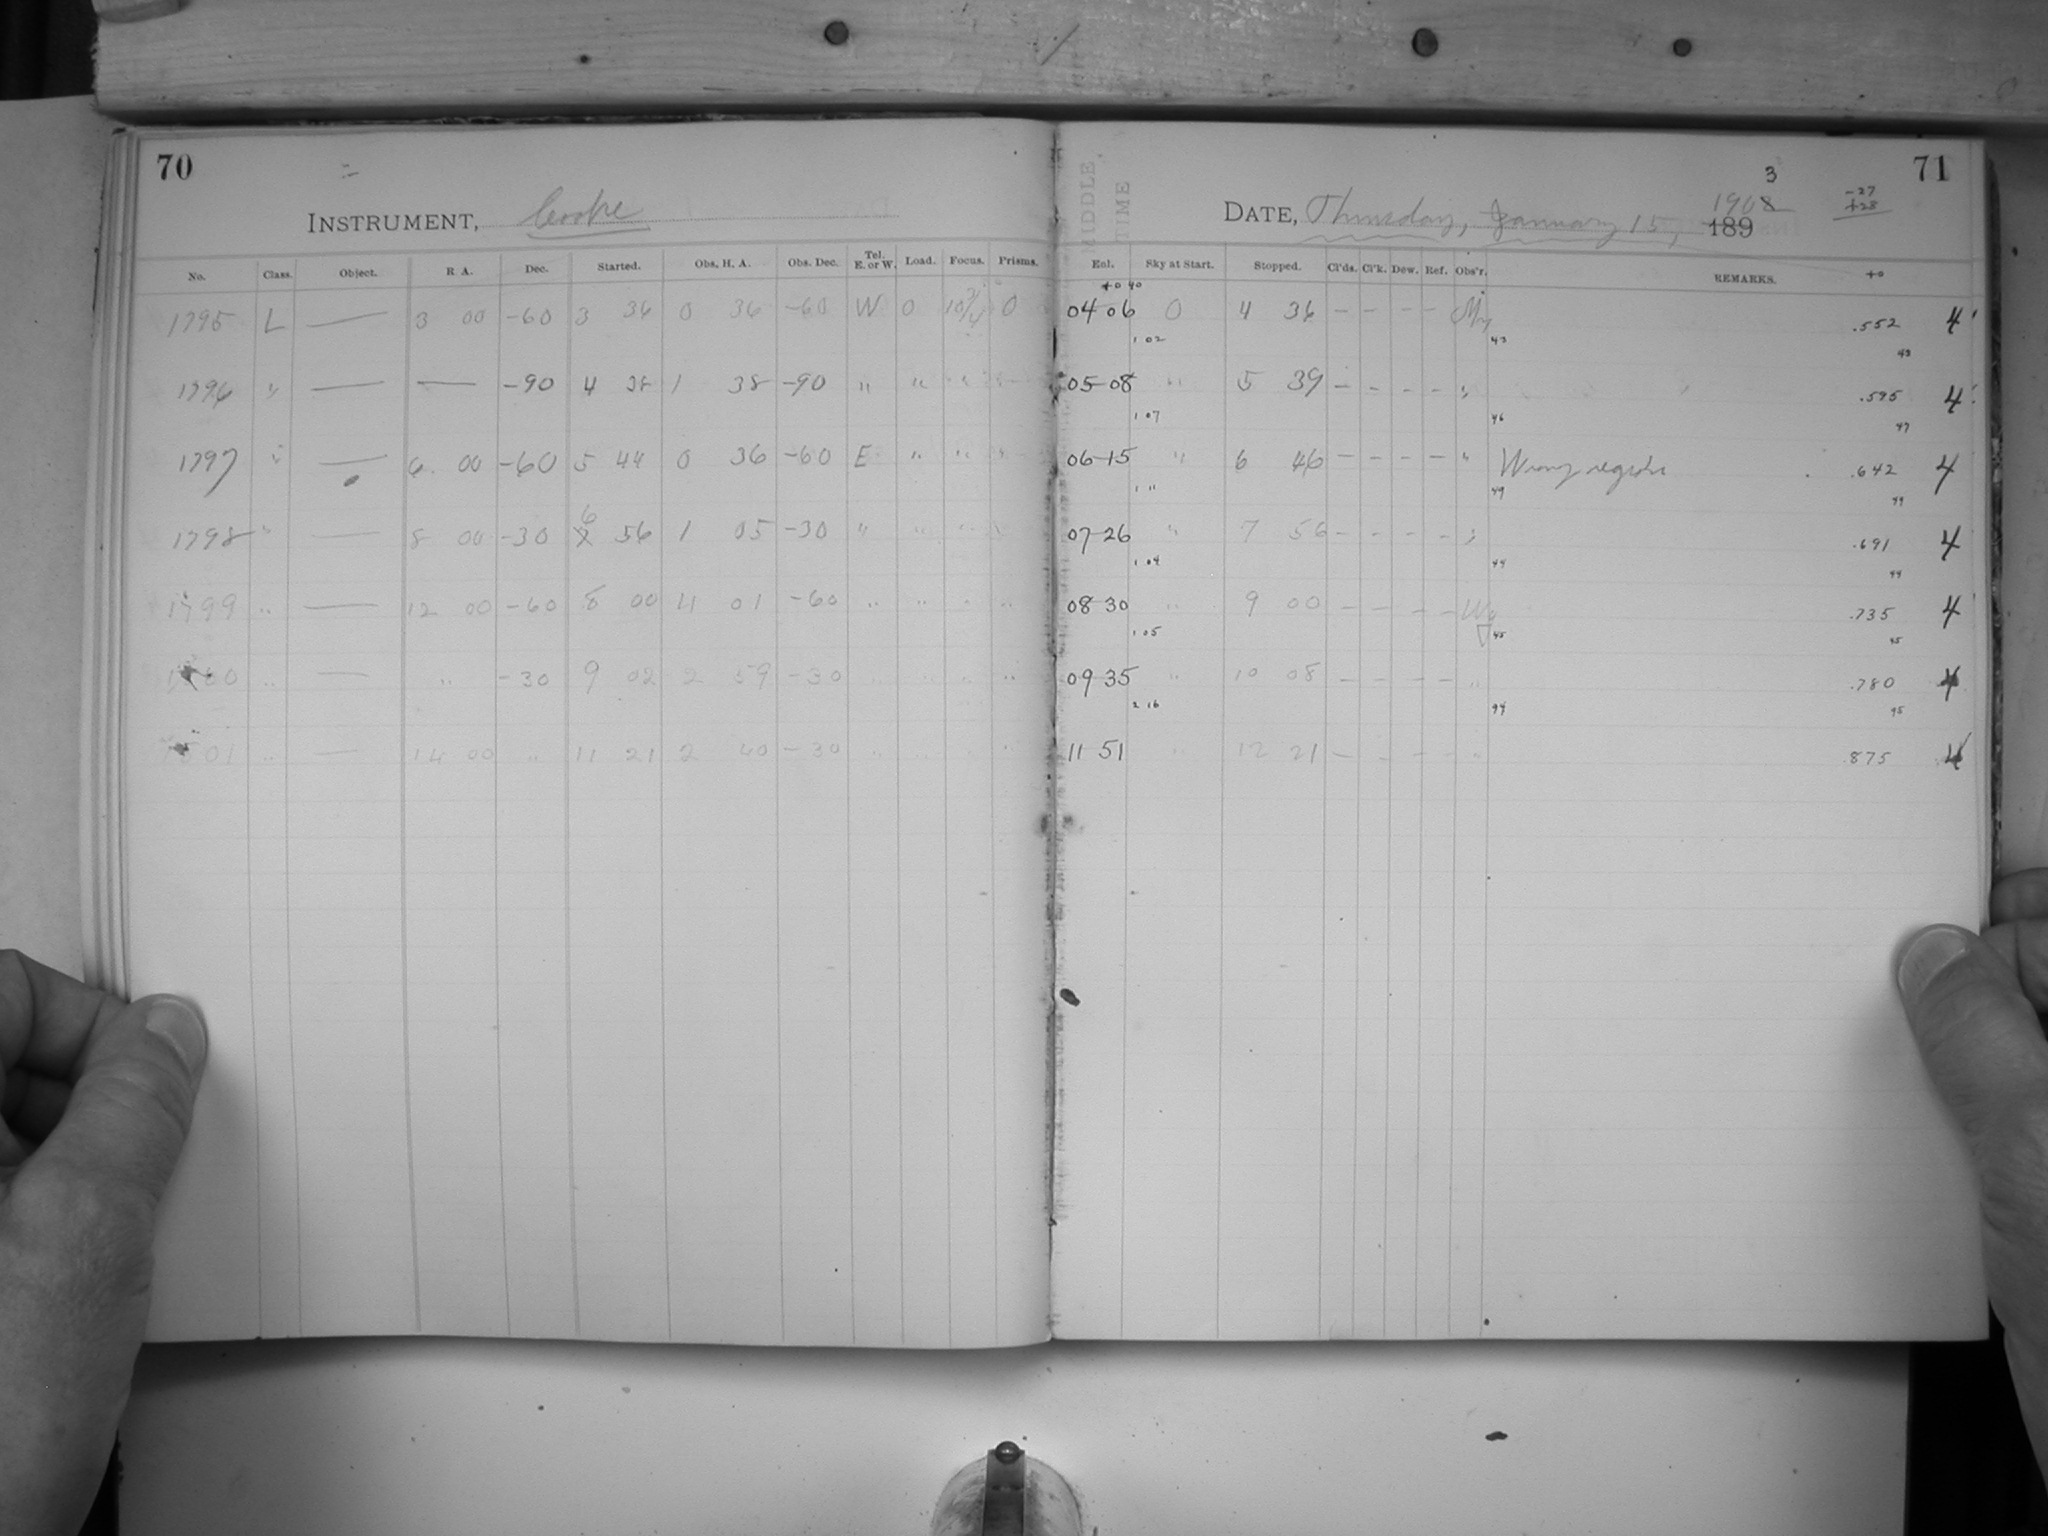 70
INSTRUMENT, Cooke
No. Class. Object. R A. Dec. Started. Obs. H. A. Obs. Dec. Tel. E. or W. Load. Focus. Prisms.
1795 L — 3 00 -60 3 36 0 36 -60 W 0 0
1796 " — — -90 4 38 1 38 -90 " " " "
1797 " — 6 00 -60 5 44 0 36 -60 E " " "
6
1798 " — 8 00 -30 56 1 05 -30 " " " "
1799 " — 12 00 -60 8 00 4 01 -60 " " " "
— " -30 9 02 2 59 -30 " "
01 " — 14 00 " 11 21 2 40 -30 "
71
MIDDLE, TIME
3
-27
+28
DATE, Thursday, January 15, 1908 189
Sky at Start. Stopped. Cl'ds. Cl'k. Dew. Ref. Obs'r. REMARKS. +0
+0 40
04 06 0 4 36 — — — — .552 4
1 02 43 43
05-08 " 5 39 — — — — " .595 4
1 07 46 47
06-15 " 6 46 — — — — " Wrong region .642 4
1 11 49 49
07-26 " 7 56 — — — — " .691 4
1 04 44 44
08 30 " 9 00 — — — — .735 4
1 05 45 45
09 35 " 10 08 — — — — " .780 4
2 16 94 95
11 51 " 12 21 — — — — " .875 4